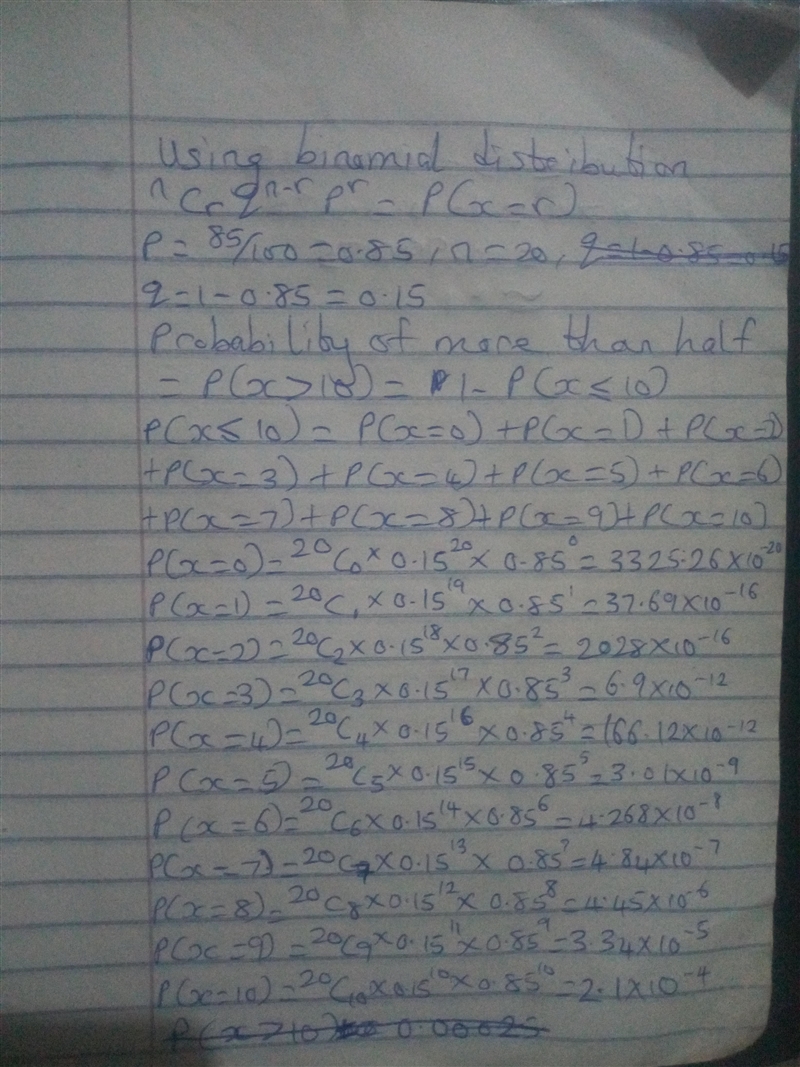 Using binomial distribution
ⁿCᵣ qⁿ⁻ʳ Pʳ = P(x=r)
P = 85/100 = 0.85, n = 20, q=1-0.85=0.15
q = 1 - 0.85 = 0.15
Probability of more than half
= P(x>10) = 1 - P(x≤10)
P(x≤10) = P(x=0) + P(x=1) + P(x=2)
+P(x=3) + P(x=4) + P(x=5) + P(x=6)
+P(x=7) + P(x=8) + P(x=9) + P(x=10)
P(x=0) = ²⁰C₀ × 0.15²⁰ × 0.85⁰ = 3325.26×10⁻²⁰
P(x=1) = ²⁰C₁ × 0.15¹⁹ × 0.85¹ = 37.69×10⁻¹⁶
P(x=2) = ²⁰C₂ × 0.15¹⁸ × 0.85² = 2028×10⁻¹⁶
P(x=3) = ²⁰C₃ × 0.15¹⁷ × 0.85³ = 6.9×10⁻¹²
P(x=4) = ²⁰C₄ × 0.15¹⁶ × 0.85⁴ = 166.12×10⁻¹²
P(x=5) = ²⁰C₅ × 0.15¹⁵ × 0.85⁵ = 3.01×10⁻⁹
P(x=6) = ²⁰C₆ × 0.15¹⁴ × 0.85⁶ = 4.268×10⁻⁸
P(x=7) = ²⁰C₇ × 0.15¹³ × 0.85⁷ = 4.84×10⁻⁷
P(x=8) = ²⁰C₈ × 0.15¹² × 0.85⁸ = 4.45×10⁻⁶
P(x=9) = ²⁰C₉ × 0.15¹¹ × 0.85⁹ = 3.34×10⁻⁵
P(x=10) = ²⁰C₁₀ × 0.15¹⁰ × 0.85¹⁰ = 2.1×10⁻⁴
P(x>10) 0.00025